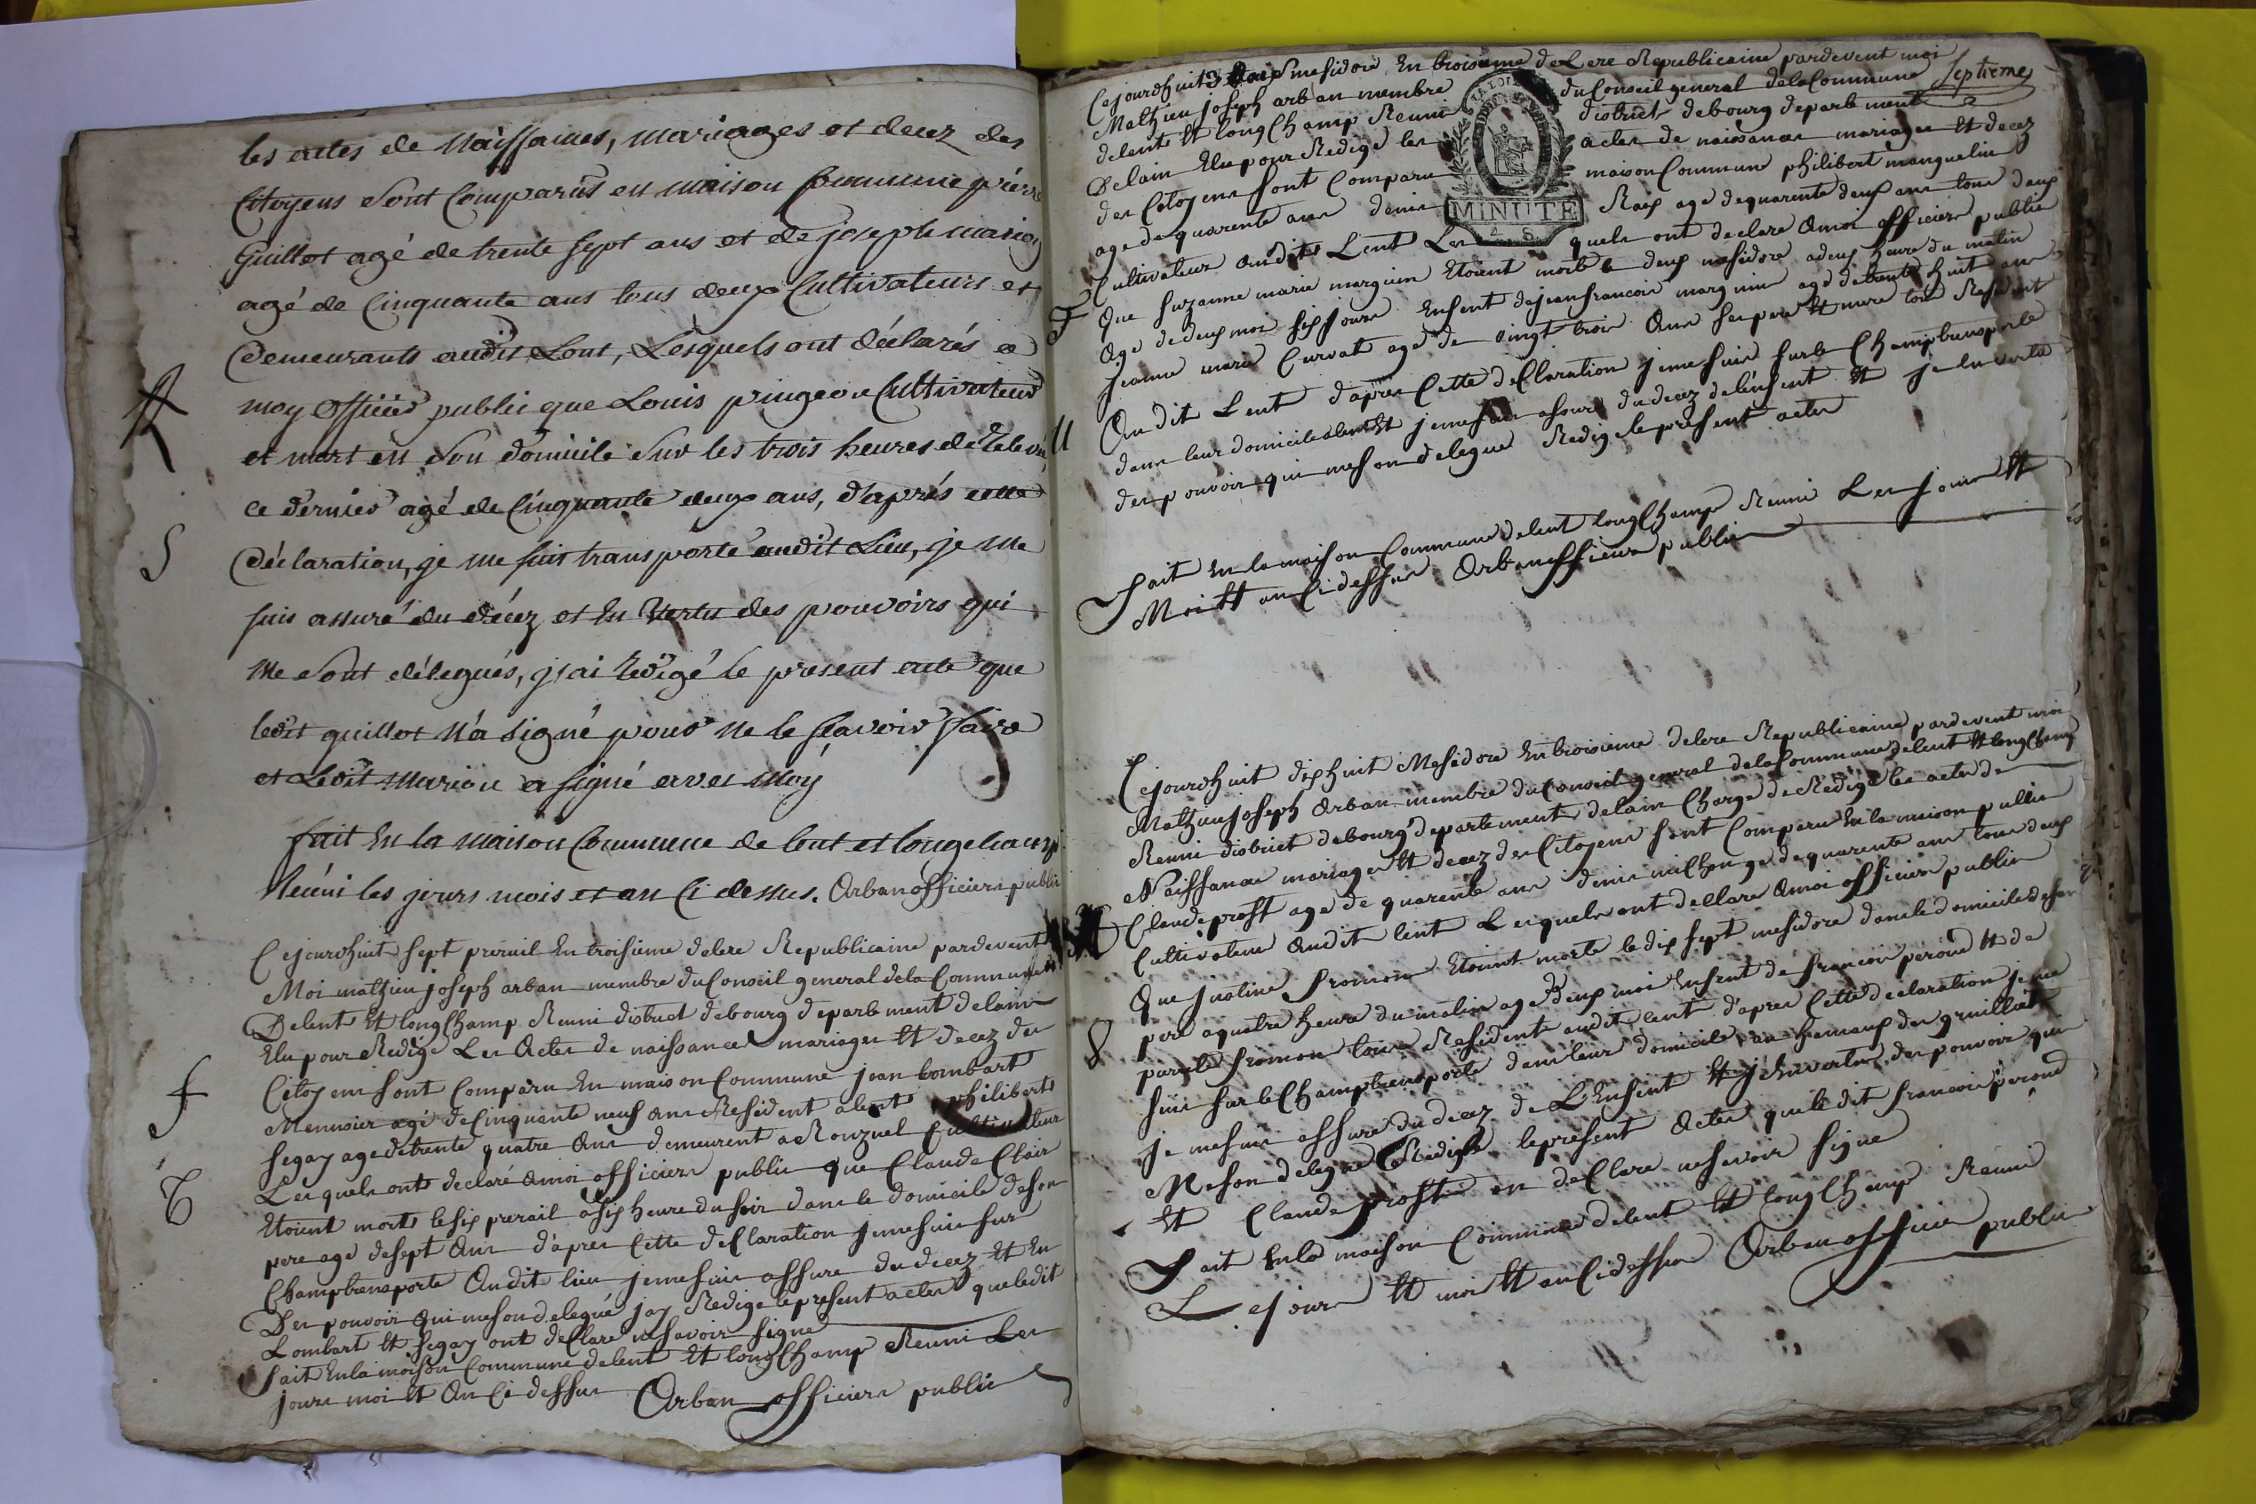 les actes de Naissances, mariages et decez des
Citoyens sont Comparus en maison Commune pierre
Guillot agé de trente sept ans et de joseph marion
agé de Cinquante ans tous deux Cultivateurs et
Demeurants audit Lent, Lesquels ont déclarés a
moy officier public que Louis pingeon Cultivateur
et mort en son domicile sur les trois heures de
ce dernier agé de Cinquante deux ans, d'aprés cette
Déclaration, je me suis transporté audit Lieu, je me
suis assuré du décez et En Vertu des pouvoirs qui
me sont délegués, j'ai redigé le present acte que
ledit guillot n'a signé pour ne le scavoir faire
et Ledit Marion a signé avec moy
fait En la maison Commune de lent et longchamp
Réuni les jours mois et an Ci dessus. Orban officiere public
Cejourdhuit sept prerail En troisieme delere Republicaine pardevent
Moi mathieu joseph arban membre du Conseil general dela Commune
Delent Et longChamp Reuni distruct debourg departement delain
Elu pour Redige Les Actes de naissances mariages Et decez des
Citoyens sont Comparu En maison Commune jean bombart
Mennuier agé de Cinquante neuf ans Resident alent philibert
segay age detrente quatre Ans demeurent a Rouzuel Cultivateur
Les quels onts declaré Amoi officiere public que Claude Clair
Etoient morts le six prerail a six heure du soir dans le domicile deson
pere age desept Ans d'apres Cette deClaration jemesuis sur
Champ trensporte Audit lieu jemesuis assure dudecez Et En
Des pouvoir Qui meson delegué jay Redige lepresent actes queledit
Lombart Et segay ont deClare nesavoir signe
Fait Enla maison Commune delent Et longChamp Reuni Les
jours moi Et An Ci dessus Orban officiere public
F
8
Septieme
Cejourdhuit 3 mesidore En troisieme deLere Republicaine pardevent moi
Mathieu joseph arban membre du Conseil general dela Commune
delent Et longChamp Reuni district debourg departement
Delain Elu pour Redige les actes de naissances mariages Et decez
des Citoyens sont Comparu maison Commune philibert manguelin
age de quarente ans denis Rais age dequarente deux ans tous deux
Cultivateur Audit Lent Les quels ont declare Amoi officiere public
Que suzanne marie marguin Etoient morte le deux mesidore adeux heure du matin
Age dedeux moi six jours Enfent dejean francois marguin age detrente huit ans
jeanne marie Curvat age de vingt trois Ans ses pere Et mere tous Resident
Audit Lent d'apres Cette deClaration jemesuis surle Champ trensporte
dans leur domicile alent Et jemesuis assure dudecez delenfent Et jenvertu
des pouvoir qui meson delegue Redige lepresent actes
Fait En la maison Commune delent longChamp Reuni Les jours Et
Moi Et an Cidessus Orban officiere public
MINUTE
Cejourdhuit dixhuit Mesidore En troisieme delere Republicaine pardevent moi
Mathieu joseph Orban membre du Conseil general dela Commune delent Et longChamp
Reuni district debourg departement delain Charge de Redige les actes de
Naissances mariages Et decez des Citoyens sont Comparu En la maison public
Claude prost age de quarente ans denis milhon age dequarente ans tous deux
Cultivateur Audit lent Lesquels ont declare Amoi officiere public
Que justine fromon Etoient morte le dix sept mesidore dans le domicile deson
pere aquatre heure du matin age deux moi Enfent de francois peroud Et de
fromon tous Residente audit lent d'apres Cette declaration jeme
suis surle Champ trensporte dans leur domicile au hemaux des gruillat
je mesuis assure du decez de L'Enfent Et jEnvertu des pouvoir qui
Meson delegue Redige lepresent Actes queledit francois peroud
Et Claude prost on deClare nesavoir signe
Fait Enla maison Commune delent Et longChamp Reuni
Lejours Et moi Et an Cidessus Orban officiere public